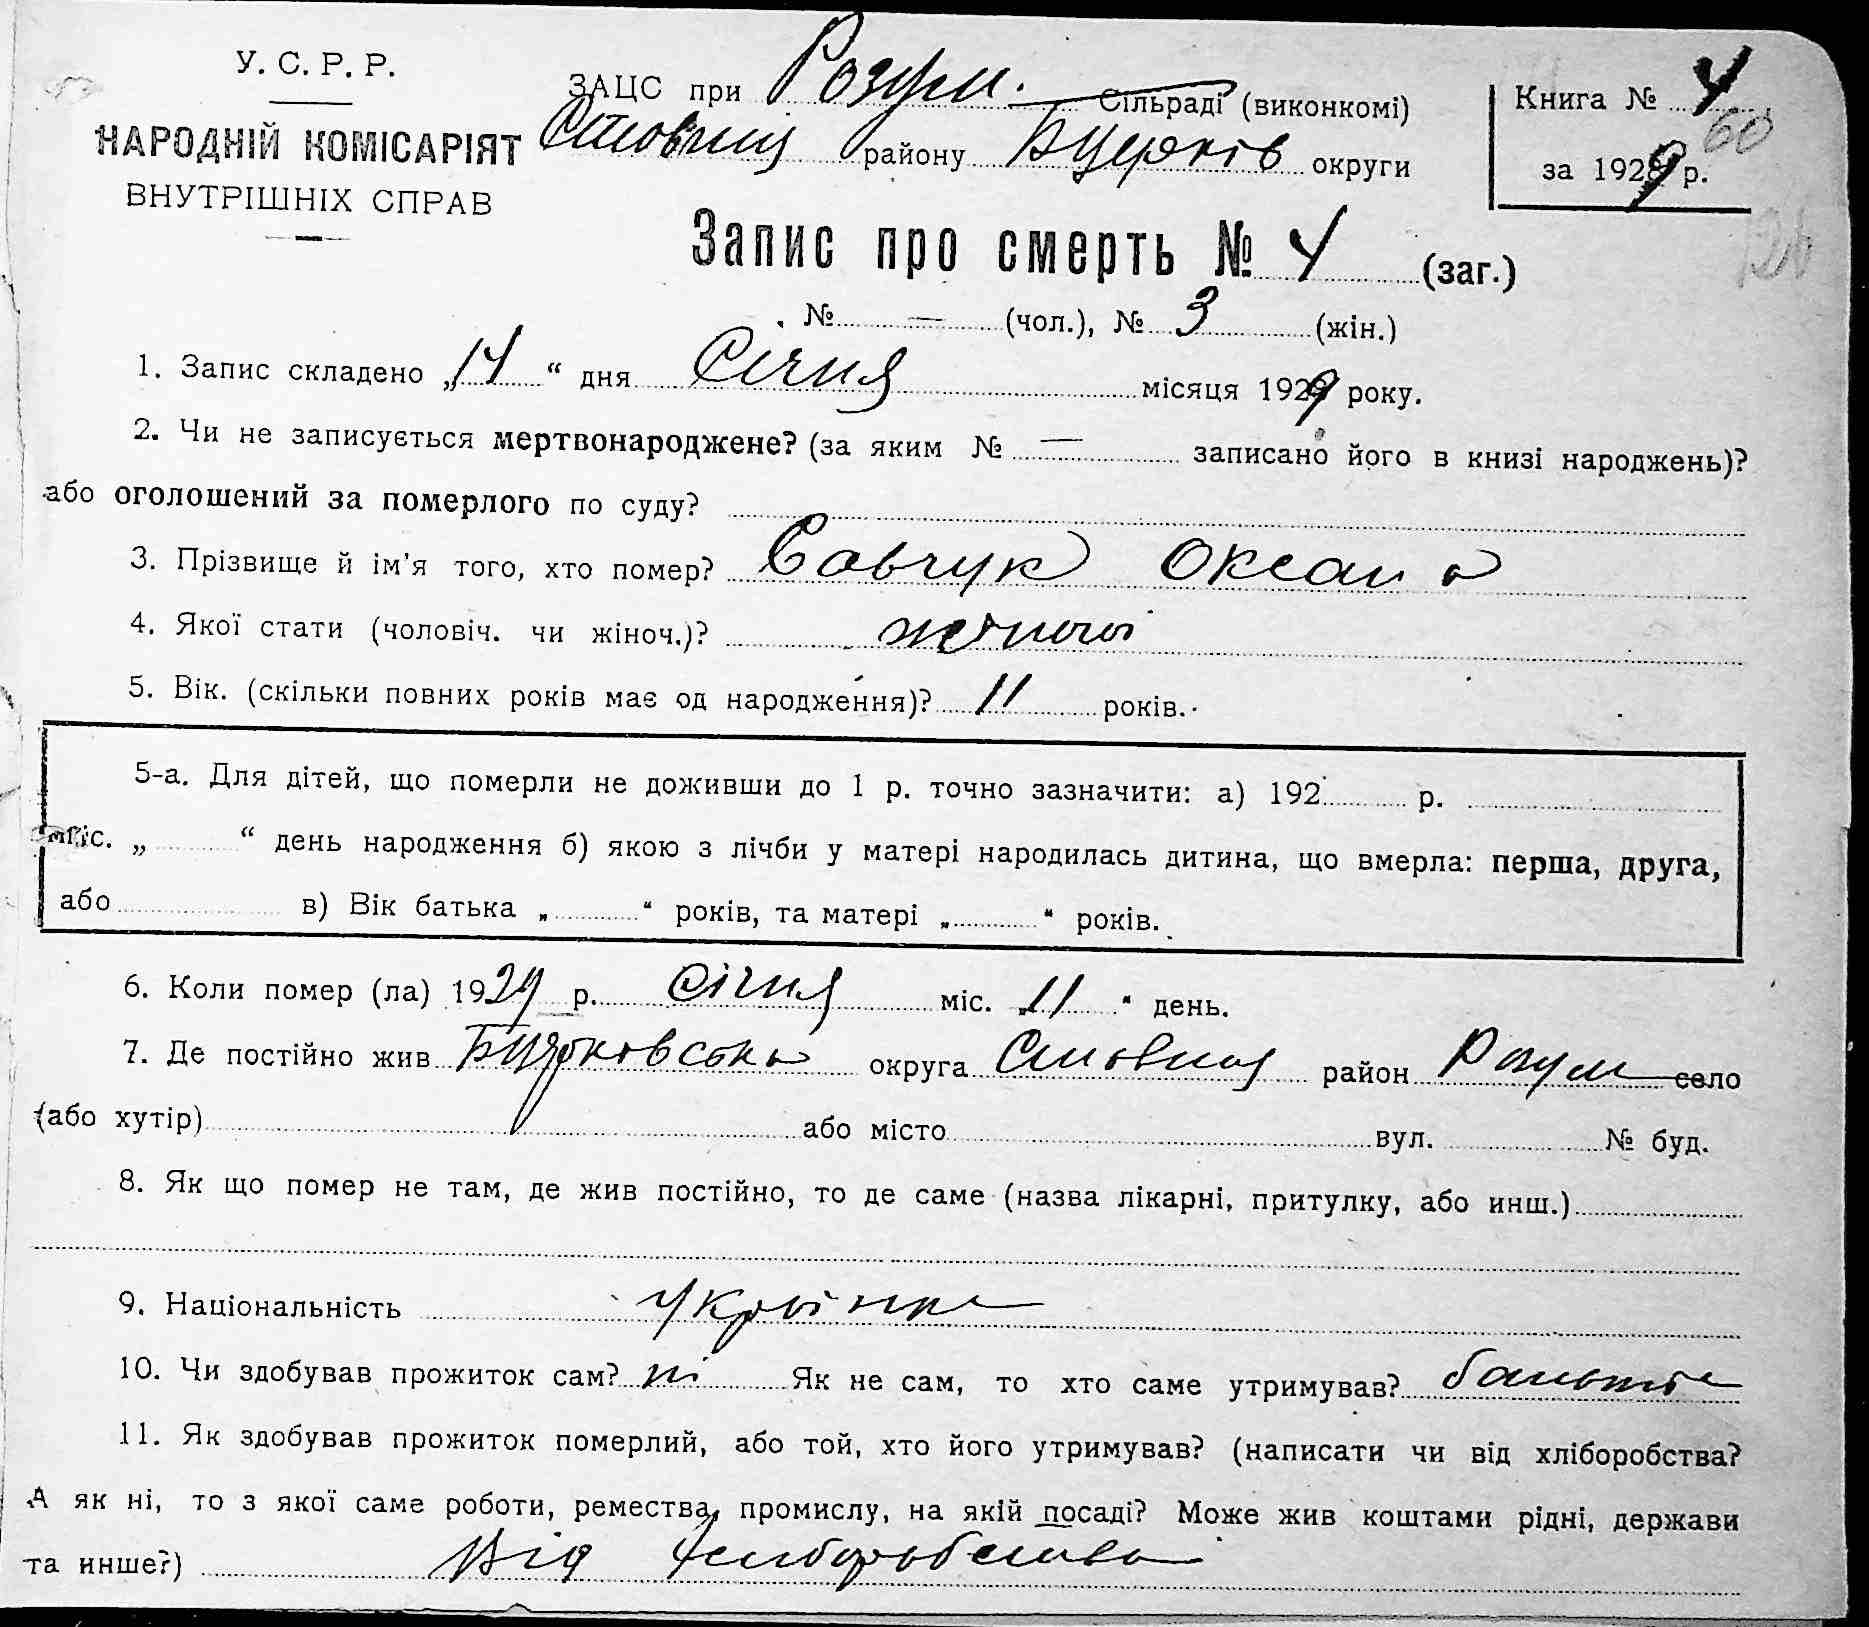 У. С. Р. Р.
НАРОДНІЙ КОМІСАРІЯТ
ВНУТРІШНІХ СПРАВ
ЗАЦС при Розум. Сільраді (виконкомі)
району Бцеркiв округи
Книга № 4
60
за 1929 р.
Запис про смерть № 4 (заг.)
№ — (чол.), № 3 (жін.)
1. Запис складено „14“ дня Січня місяця 1929 року.
2. Чи не записується мертвонароджене? (за яким № — записано його в книзі народжень)?
або оголошений за померлого по суду?
3. Прізвище й ім'я того, хто помер? Савчук Оксана
4. Якої стати (чоловіч. чи жіноч.)? жіночої
5. Вік. (скільки повних років має од народження)? 11 років.
5-а. Для дітей, що померли не доживши до 1 р. точно зазначити: а) 192 р.
міс. „ “ день народження б) якою з лічби у матері народилась дитина, що вмерла: перша, друга,
або в) Вік батька „ “ років, та матері „ “ років.
6. Коли помер (ла) 1929 р. січня міс. „11“ день.
7. Де постійно жив округа район Розум село
(або хутір) або місто вул. № буд.
8. Як що помер не там, де жив постійно, то де саме (назва лікарні, притулку, або инш.)
9. Національність українка
10. Чи здобував прожиток сам? ні Як не сам, то хто саме утримував? батько
11. Як здобував прожиток померлий, або той, хто його утримував? (написати чи від хліборобства?
А як ні, то з якої саме роботи, ремества, промислу, на якій посаді? Може жив коштами рідні, держави
та инше?) Від хліборобства